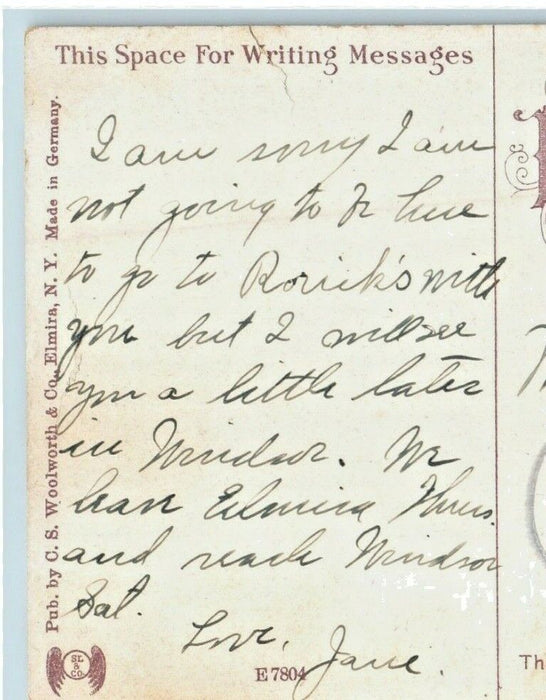 This Space For Writing Messages
I am sorry I am
not going to be here
to go to Rorick's with
you but I will see
you a little later
in Windsor. We
leave Elmira Thurs.
and reach Windsor
Sat.
Love,
Jane.
Pub. by C. S. Woolworth & Co., Elmira, N. Y. Made in Germany.
SL & CO
E 7804
Th